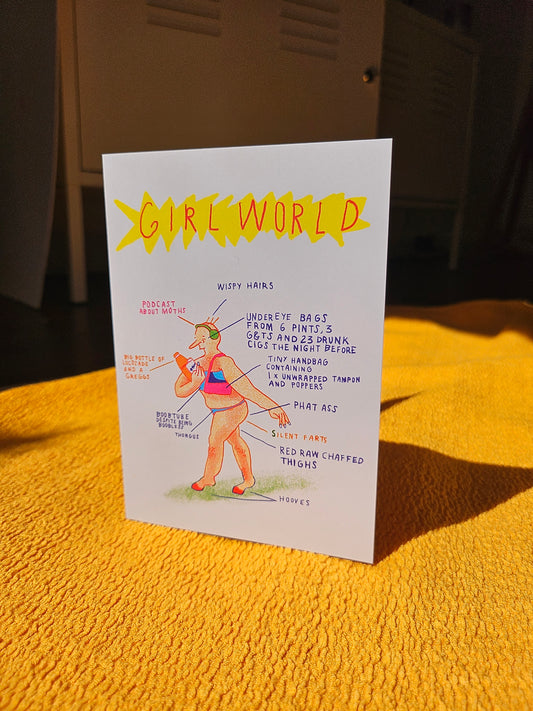 GIRL WORLD
WISPY HAIRS
PODCAST
ABOUT MOTHS
UNDEREYE BAGS
FROM 6 PINTS, 3
G&TS AND 23 DRUNK
CIGS THE NIGHT BEFORE
BIG BOTTLE OF
LUCOZADE
AND A
GREGGS
TINY HANDBAG
CONTAINING
1 X UNWRAPPED TAMPON
AND POPPERS
BOOBTUBE
DESPITE BEING
BOOBLESS
PHAT ASS
THONGUE
SILENT FARTS
RED RAW CHAFFED
THIGHS
HOOVES